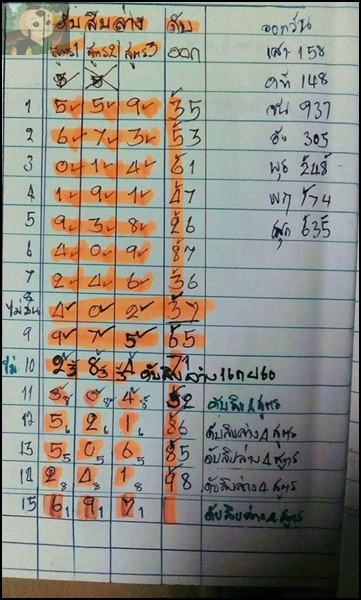 ดับสิบล่าง ดับ ออกวัน
สูตร1 สูตร2 สูตร3 ออก เสา 158
5 5 อาทิ 148
1 5 5 9 35 จัน 937
2 6 7 3 53 อัง 305
3 0 1 4 61 พุธ 248
4 1 9 1 47 พฤ 774
5 9 3 8 26 ศุก 635
6 4 0 9 87
7 2 4 6 36
8 4 0 2 37
9 9 7 5 65
ไม่ 10 2 3 8 3 4 3 71 ดับสิบล่าง
11 3 8 0 8 4 8 52 ดับสิบ 4 สูตร
12 5 6 2 6 1 6 86 ดับสิบล่าง 4 สูตร
13 5 5 0 5 6 5 85 ดับสิบล่าง 4 สูตร
14 2 8 4 8 1 8 98 ดับสิบล่าง 4 สูตร
15 6 1 9 1 7 1 ดับสิบล่าง 4 สูตร